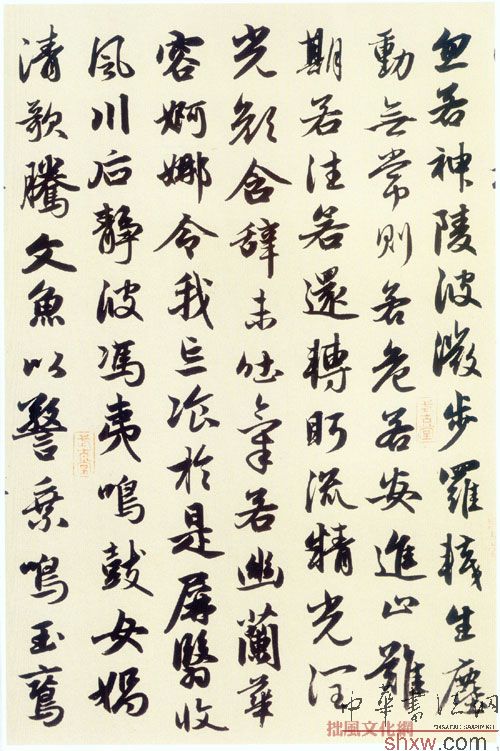 忽若神陵波微步羅襪生塵
動無常則若危若安進止難
期若往若還轉眄流精光潤
光顏含辭未吐氣若幽蘭華
容婀娜令我忘飡於是屏翳收
風川后靜波馮夷鳴鼓女媧
清歌騰文魚以警乘鳴玉鸞
中華書法網
拙風文化網
shxw.com